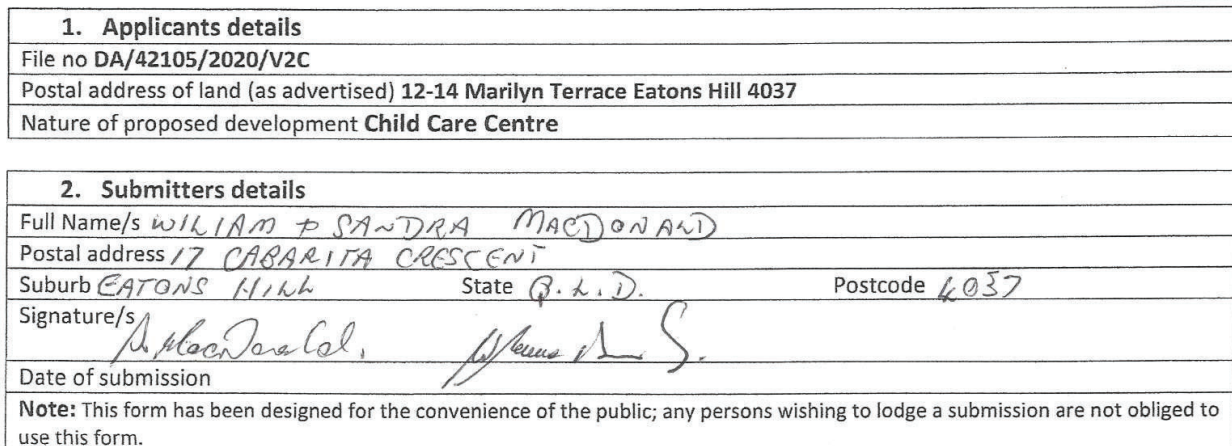 1. Applicants details
File no DA/42105/2020/V2C
Postal address of land (as advertised) 12-14 Marilyn Terrace Eatons Hill 4037
Nature of proposed development Child Care Centre
2. Submitters details
Full Name/s WILIAM & SANDRA MACDONALD
Postal address 17 CABARITA CRESCENT
Suburb EATONS HILL State Q.L.D. Postcode 4037
Signature/s S. MacDonald.
Date of submission
Note: This form has been designed for the convenience of the public; any persons wishing to lodge a submission are not obliged to
use this form.